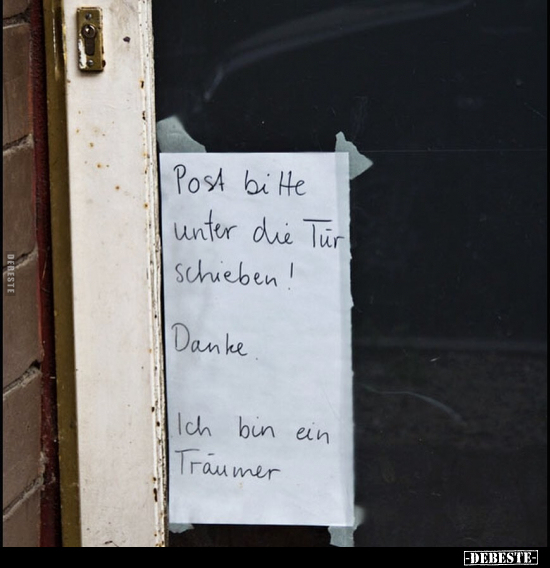 Post bitte
unter die Tür
schieben!
Danke.
Ich bin ein
Träumer
DEBESTE
-DEBESTE-